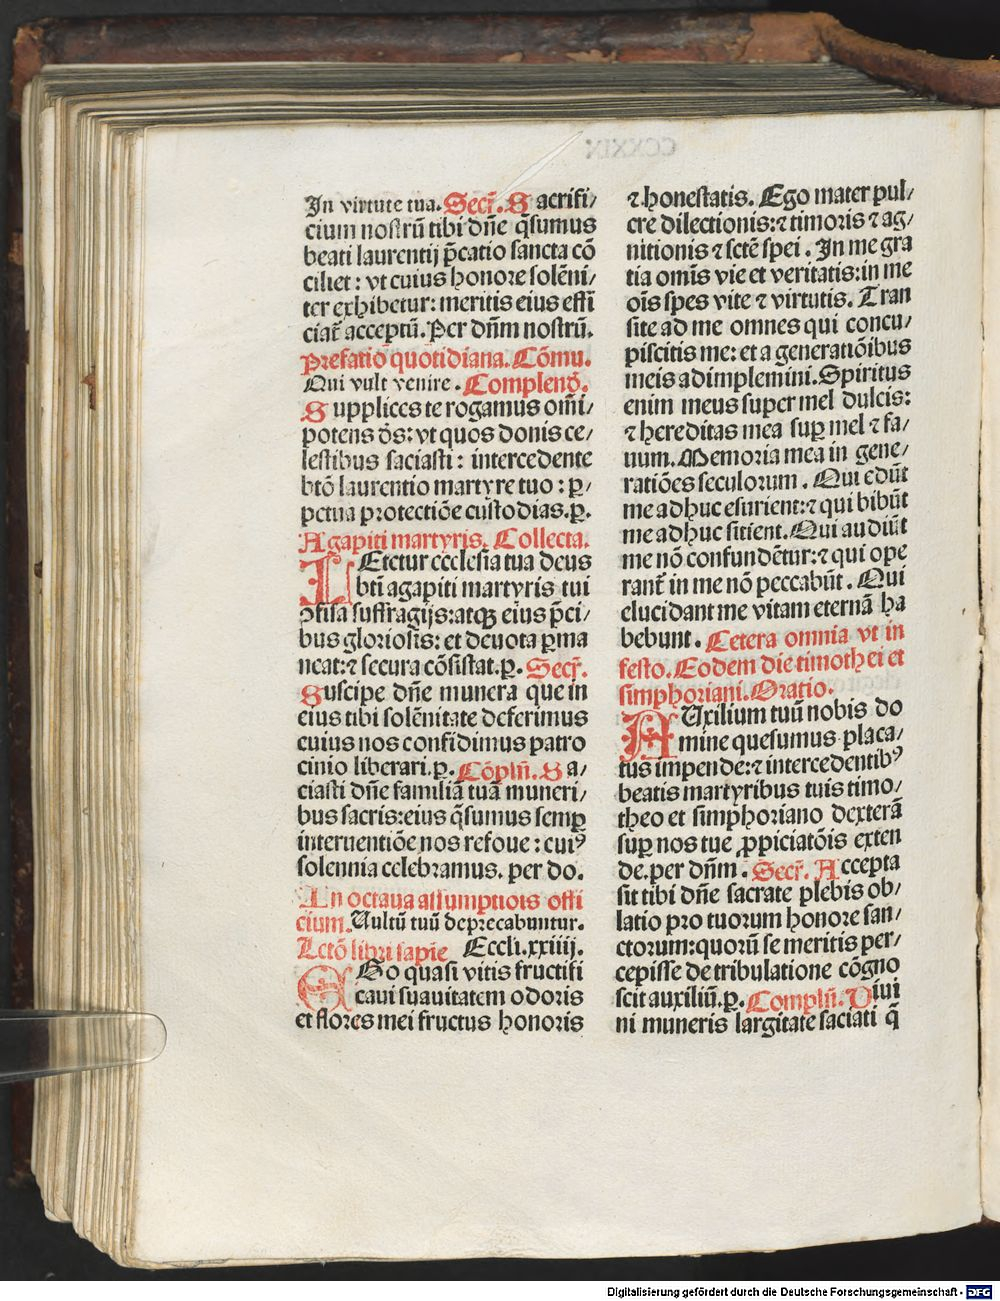 In virtute tua. Secr̃. Sacrifi⸗
cium nostrū tibi dñe q̃sumus
beati laurentij p̃catio sancta cō
ciliet: vt cuius honore solēni⸗
ter exhibetur: meritis eius effi
ciat᷑ acceptū. Per dñm nostrū.
Prefatio quotidiana. Cōmu.
Qui vult venire. Complend̄.
Supplices te rogamus om̄i⸗
potens d̄s: vt quos donis ce⸗
lestibus saciasti: intercedente
btō laurentio martyre tuo: ꝑ⸗
pctua protectiōe custodias. ꝑ.
Agapiti martyris. Collecta.
LEtetur ecclesia tua deus
bti̅ agapiti martyris tui
ꝯfisa suffragijs: atqꝫ eius p̄ci⸗
bus gloriosis: et deuota ꝑma
neat: ⁊ secura cōsistat. ꝑ. Secr̃.
Suscipe dñe munera que in
eius tibi solēnitate deferimus
cuius nos confidimus patro
cinio liberari. ꝑ. Cōpln̄. Sa⸗
ciasti dñe familiā tuā muneri⸗
bus sacris: eius q̃sumus semꝑ
interuentiōe nos refoue: cuiꝰ
solennia celebramus. per do.
In octaua assumptiois offi
cium. Uultū tuū deprecabuntur.
Lctō libri sapie Eccli. xxiiij.
EGo quasi vitis fructifi
caui suauitatem odoris
et flores mei fructus honoris
⁊ honestatis. Ego mater pul⸗
cre dilectionis: ⁊ timoris ⁊ ag⸗
nitionis ⁊ sctē spei. In me gra
tia om̄is vie et veritatis: in me
ois̄ spes vite ⁊ virtutis. Tran
site ad me omnes qui concu⸗
piscitis me: et a generatiōibus
meis adimplemini. Spiritus
enim meus super mel dulcis:
⁊ hereditas mea suꝑ mel ⁊ fa⸗
uum. Memoria mea in gene⸗
ratiōes seculorum. Qui edūt
me adhuc esurient: ⁊ qui bibūt
me adhuc sitient. Qui audiūt
me nō confundēt᷑ur: ⁊ qui ope
rant᷑ in me nō peccabūt. Qui
elucidant me vitam eternā ha
bebunt. Cetera omnia vt in
festo. Eodem die timothei et
simphoriani. Oratio.
AUxilium tuū nobis do
mine quesumus placa⸗
tus impende: ⁊ intercedentibꝰ
beatis martyribus tuis timo⸗
theo et simphoriano dexterā
suꝑ nos tue ꝓpiciatōis exten
de. per dñm. Secr̃. Accepta
sit tibi dñe sacrate plebis ob⸗
latio pro tuorum honore san⸗
ctorum: quorū se meritis per⸗
cepisse de tribulatione cōgno
scit auxiliū. ꝑ. Compln̄. Diui
ni muneris largitate saciati q̃
Digitalisierung gefördert durch die Deutsche Forschungsgemeinschaft - DFG